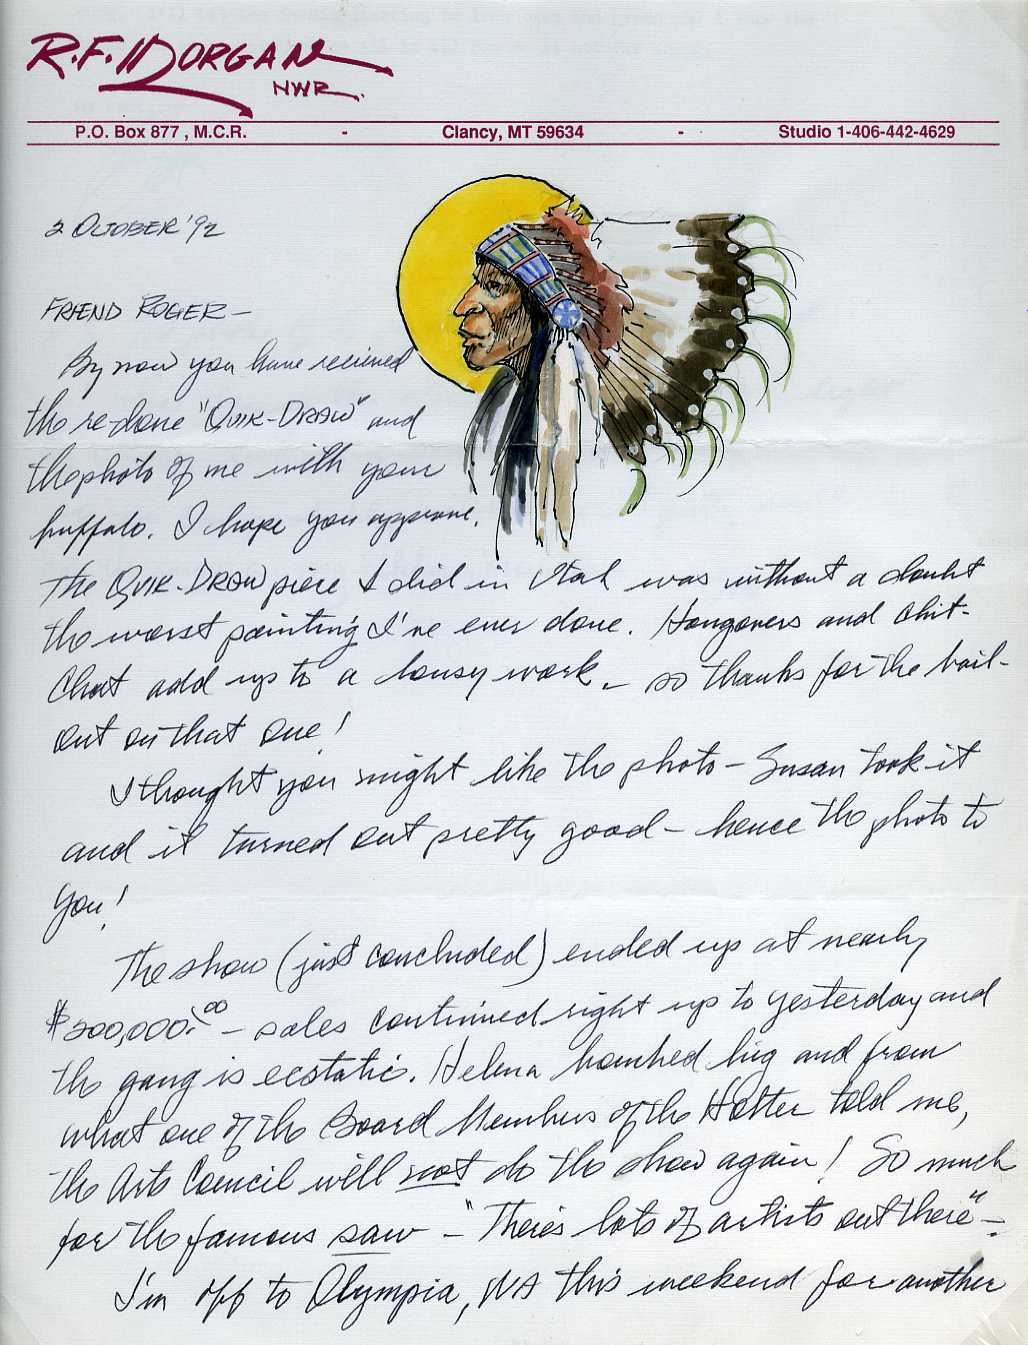 R.F. MORGAN
NWR.
P.O. Box 877 , M.C.R. - Clancy, MT 59634 - Studio 1-406-442-4629
2 OCTOBER '92
FRIEND ROGER —
By now you have recieved
the re-done "QUIK-DRAW" and
the photo of me with your
buffalo. I hope you approve.
The QUIK-DRAW piece I did in Utah was without a doubt
the worst painting I've ever done. Hangovers and chit-
chat add up to a lousy work — so thanks for the bail-
out on that one!
I thought you might like the photo — Susan took it
and it turned out pretty good — hence the photo to
you!
The show (just concluded) ended up at nearly
$200,000.00 — sales continued right up to yesterday and
the gang is ecstatic. Helena bombed big and from
what one of the Board Members of the Holter told me,
the Arts Council will not do the show again! So much
for the famous saw — "There's lots of artists out there" —
I'm off to Olympia, WA this weekend for another